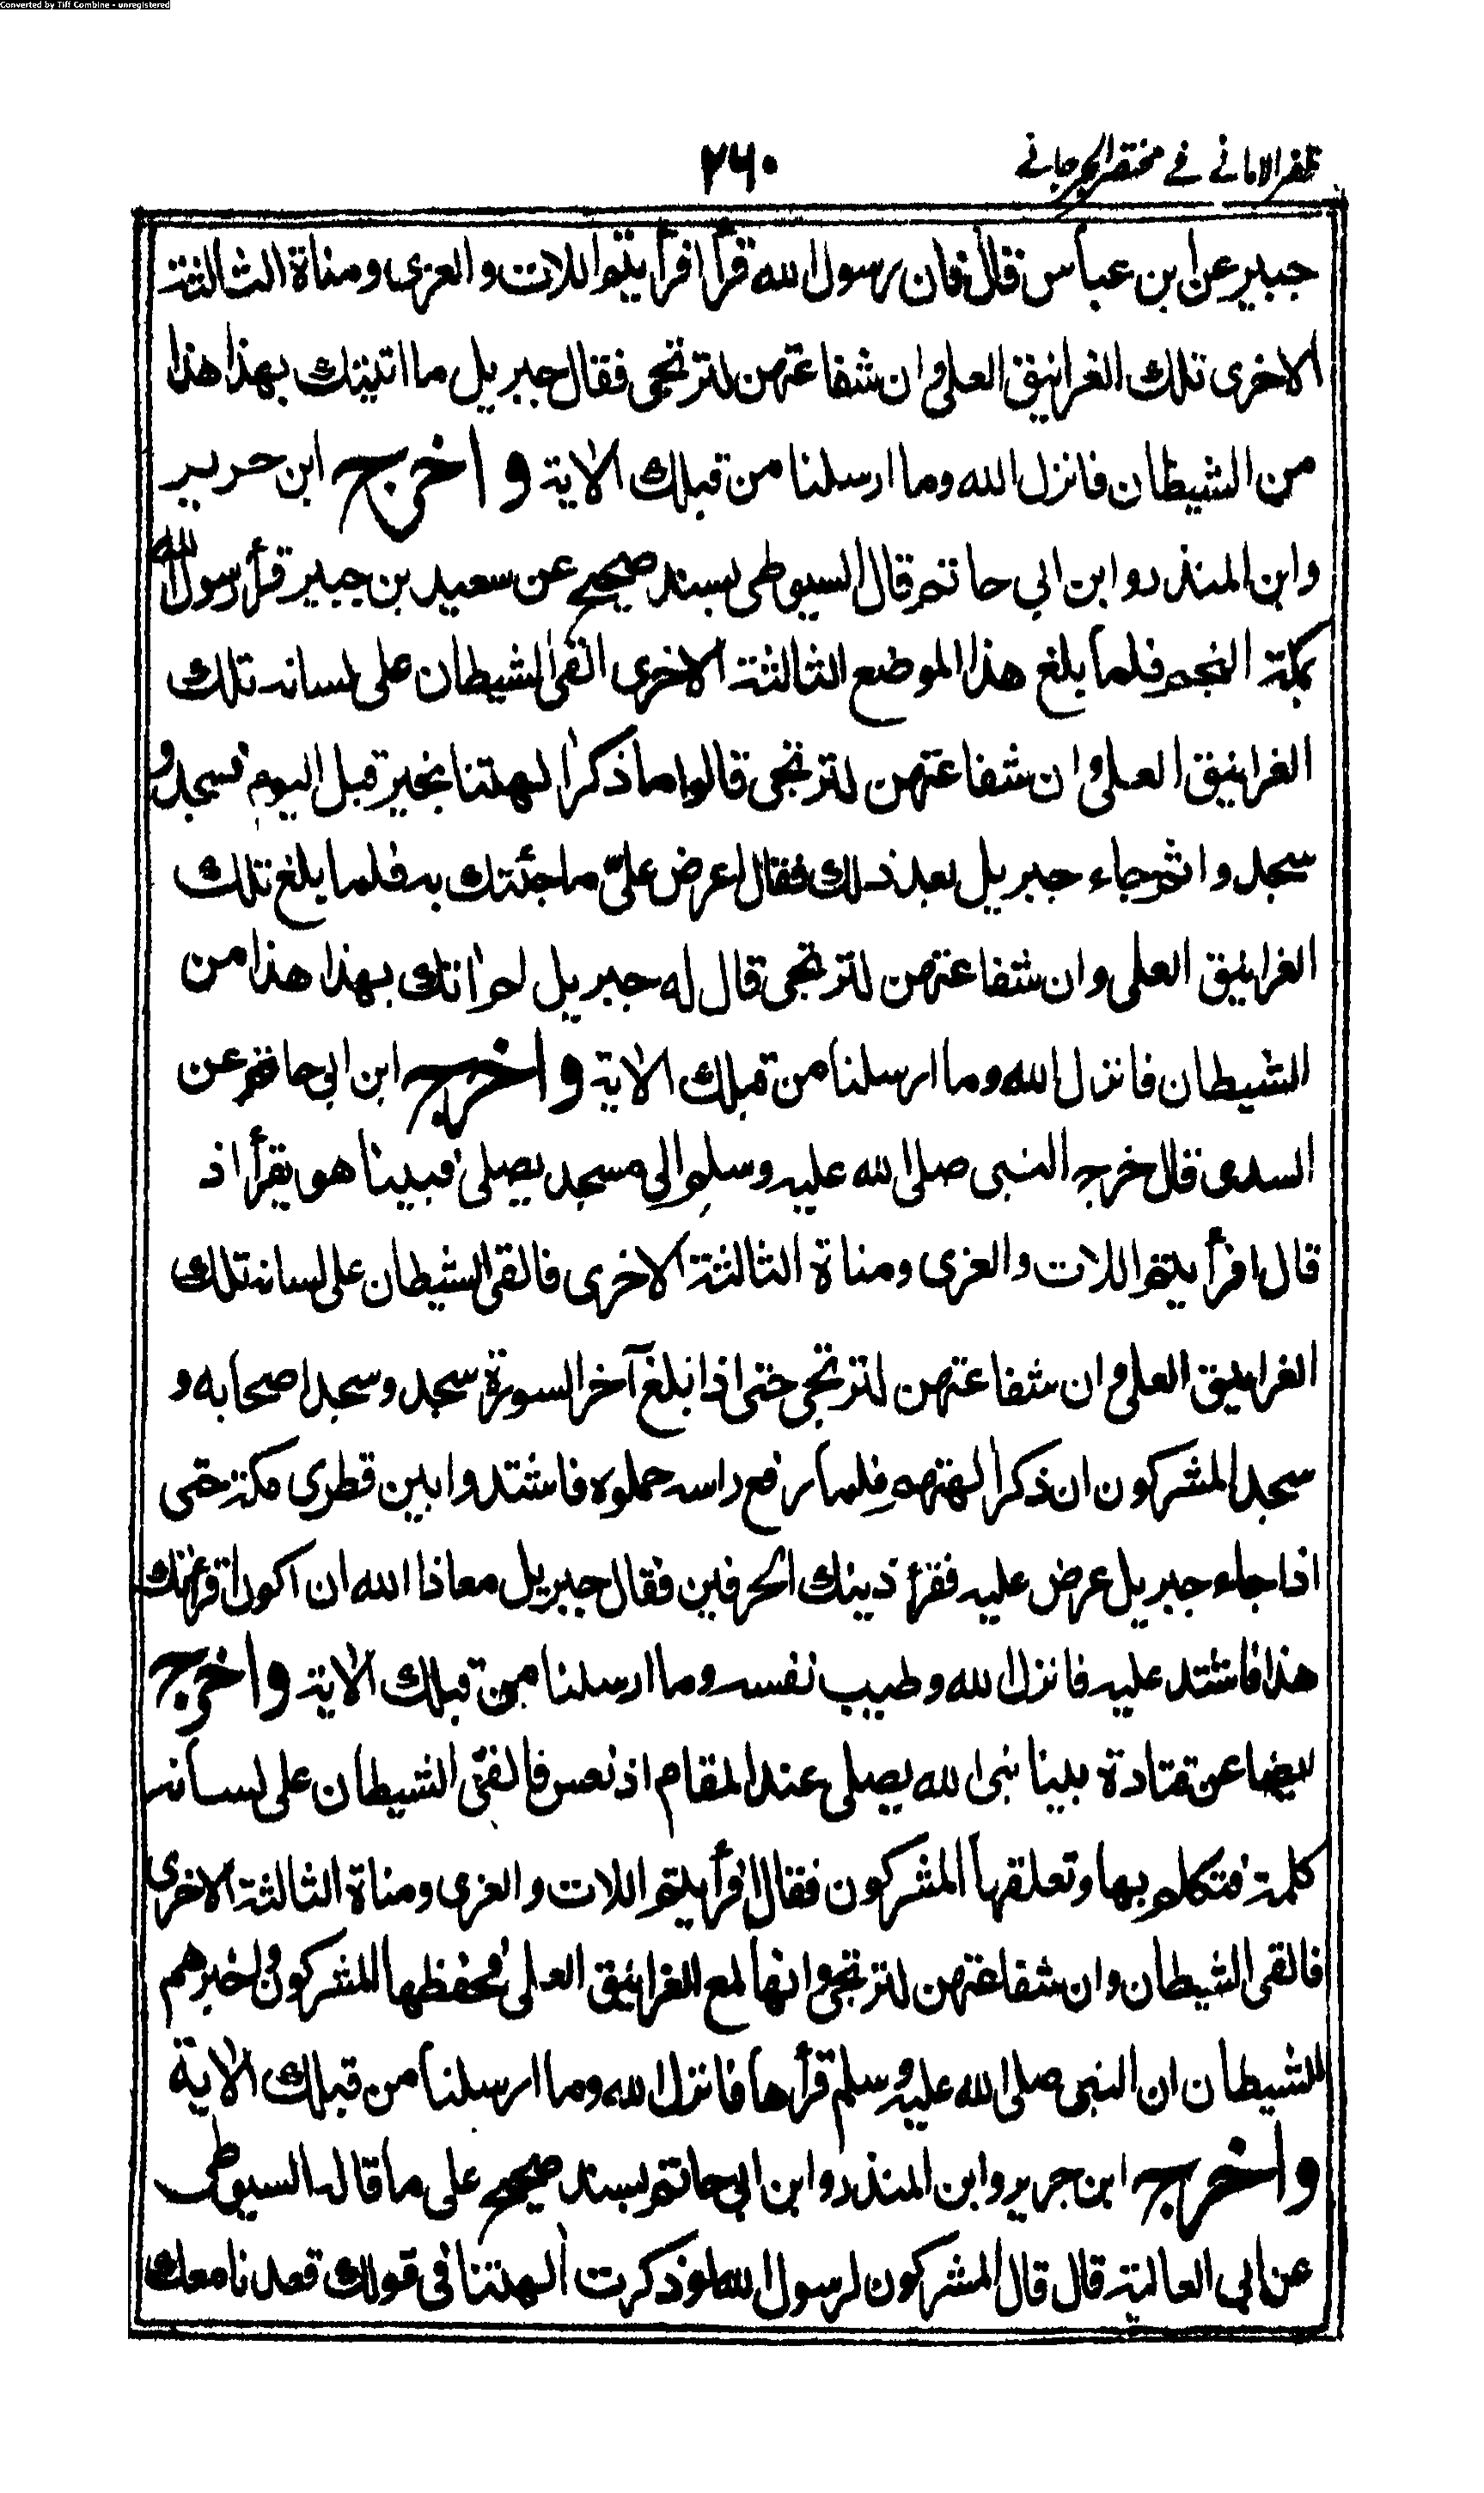 Converted by Tiff Combine - unregistered
ظفر الامانی فے مختصر الجرجانے
۲۶۰
جبیر عن ابن عباس قال فان رسول الله قرأ افرأیتم اللات والعزی ومناة الثالثة
الاخری تلك الغرانیق العلی وان شفاعتهن لترتجی فقال جبریل ما اتیتك بهذا هذا
من الشیطان فانزل الله وما ارسلنا من قبلك الایة واخرج ابن جریر
وابن المنذر وابن ابی حاتم قال السیوطی بسند صحیح عن سعید بن جبیر قرأ رسول الله
بمکة النجم فلما بلغ هذا الموضع الثالثة الاخری القی الشیطان علی لسانه تلك
الغرانیق العلی وان شفاعتهن لترتجی قالوا ما ذکر الهتنا بخیر قبل الیوم فسجد و
سجد وا ثم جاء جبریل بعد ذلك فقال اعرض علیّ ما جئتك به فلما بلغ تلك
الغرانیق العلی وان شفاعتهن لترتجی قال له جبریل لم اتك بهذا هذا من
الشیطان فانزل الله وما ارسلنا من قبلك الایة واخرج ابن ابی حاتم عن
السدی قال خرج النبی صلی الله علیه وسلم الی مسجد یصلی فبینا هو یقرأ اذ
قال افرأیتم اللات والعزی ومناة الثالثة الاخری فالقی الشیطان علی لسانه تلك
الغرانیق العلی وان شفاعتهن لترتجی حتی اذا بلغ آخر السورة سجد وسجد اصحابه و
سجد المشرکون ان ذکر الهتهم فلما رفع راسه حملوه فاشتد وا بین قطری مکة حتی
اذا جاء جبریل عرض علیه فقرأ ذینك الحرفین فقال جبریل معاذ الله ان اکون اقرئتك
هذا فاشتد علیه فانزل الله وطیب نفسه وما ارسلنا من قبلك الایة واخرج
ایضا عن قتادة بینا نبی الله یصلی عند المقام اذ نعس فالقی الشیطان علی لسانه
کلمة فتکلم بها وتعلقها المشرکون فقال افرأیتم اللات والعزی ومناة الثالثة الاخری
فالقی الشیطان وان شفاعتهن لترتجی وانها لمع الغرانیق العلی فحفظها المشرکون واخبرهم
الشیطان ان النبی صلی الله علیه وسلم قرأها فانزل الله وما ارسلنا من قبلك الایة
واخرج ابن جریر وابن المنذر وابن ابی حاتم بسند صحیح علی ما قاله السیوطی
عن ابی العالیة قال قال المشرکون لرسول الله لو ذکرت الهتنا فی قولك قعدنا معك